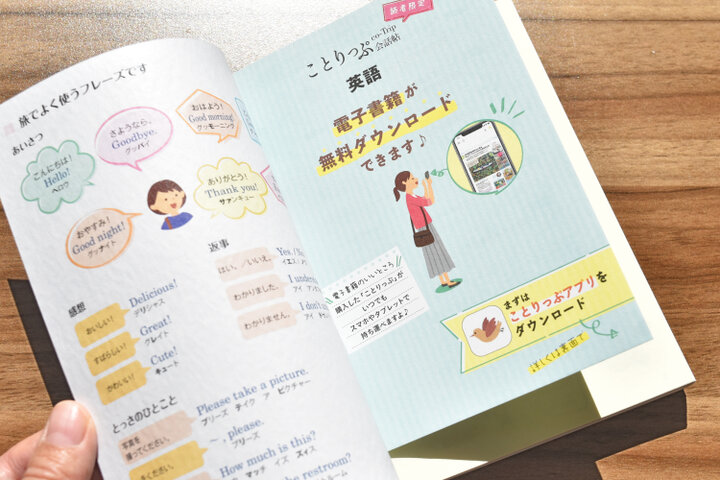 旅でよく使うフレーズです
あいさつ
おはよう!
Good morning!
グッモーニング
さようなら。
Goodbye.
グッバイ
こんにちは!
Hello!
ヘロウ
ありがとう!
Thank you!
サァンキュー
おやすみ!
Good night!
グッナイト
感想
おいしい!
Delicious!
デリシャス
すばらしい!
Great!
グレイト
かわいい!
Cute!
キュート
返事
はい。／いいえ。
わかりました。
わかりません。
I don't
とっさのひとこと
写真を
撮ってください。
Please take a picture.
プリーズ テイク ア ピクチャー
～をください。
～, please.
プリーズ
How much is this?
マッチ イズ ズィス
the restroom?
読者限定
ことりっぷ
co-Trip
会話帖
英語
電子書籍が
無料ダウンロード
できます♪
電子書籍のいいところ
購入した「ことりっぷ」が
いつでも
スマホやタブレットで
持ち運べますよ♪
まずは
ことりっぷアプリを
ダウンロード
詳しくは裏面で